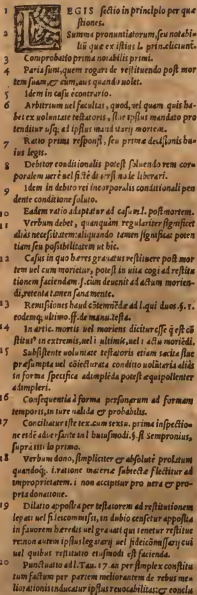 1 LEGIS sectio in principio per quæ
stiones.
2 Summa pronuntiatorum, seu notabi
liū quæ ex istius l. prin. eliciunt.
3 Comprobatio prima notabilis primi.
4 Paria sunt, quem rogari de restituendo post mor
tem suam, & cum, aut quando volet.
5 Idem in casu econtrario.
6 Arbitrium vel facultas, quod, vel quam quis ha-
bet ex voluntate testatoris, ipsius mandato pro
tenditur usq; ad ipsius mandatarij mortem.
7 Ratio prima responsi, seu prima decisionis hu-
ius legis.
8 Debitor conditionalis potest soluendo rem cor-
poralem
9 Idem in debito rei incorporalis conditionali pen
dente conditione soluto.
10 Eadem ratio adaptatur ad casum l. post mortem.
11 Verbum debet, quanquàm regulariter significet
aliàs necessitatem: aliquando tamen significat poten
tiam seu possibilitatem ut hic.
12 Casus in quo hæres grauatus restituere post mor
tem vel cum morietur, potest in vita cogi ad restitu
tionem faciendam. s. cum deuenit ad actum morien-
di, retenta tamen sana mente.
13 Remissiones haud contemnēdæ ad l. qui duos. §. 1.
eodemq; ultimo. ff. de manu. testa.
14 In artic. mortis vel moriens dicitur esse q est cō
stitutꝰ in extremis, uel ultimis, uel ĩ actu moriēdi.
15 Subsistente voluntate testatoris etiam tacita siue
præsumpta uel coiecturata conditio uoluntaria aliàs
in forma specifica adimplēda potest æquipollenter
adimpleri.
16 Consequentia à forma personarum ad formam
temporis, in iure valida & probabilis.
17 Conciliatur iste tex. cum sensu. prima inspectio-
ne esse aduersante in l. huiusmodi. §. si Sempronius,
supra titulo primo.
18 Verbum dono, simpliciter & absolutè prolatum
quandoq;. i. ratione materiæ subiectæ flectitur ad
improprietatem. i. non accipitur pro uera & pro-
pria donatione.
19 Dilatio apposita per testatorem ad restitutionem
legati uel fideicommissi, in dubio censetur apposita
in fauorem hæredis uel grauati qui tenetur restitue
re: non autem ipsius legatarij uel fideicommissarij cui
uel quibus restitutio eiusmodi est facienda.
20 Punctuatio ad l. Tau. 17 an per simplex constitu
tum factum per patrem meliorantem de rebus me-
liorationis inducatur ipsius reuocabilitas: & concla